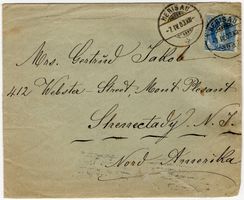 HERISAU
HERISAU
Mrs. Gertrud Jakob
412 Webster-Street Mont Plesant
Shenectady N. J.
Nord-Amerika